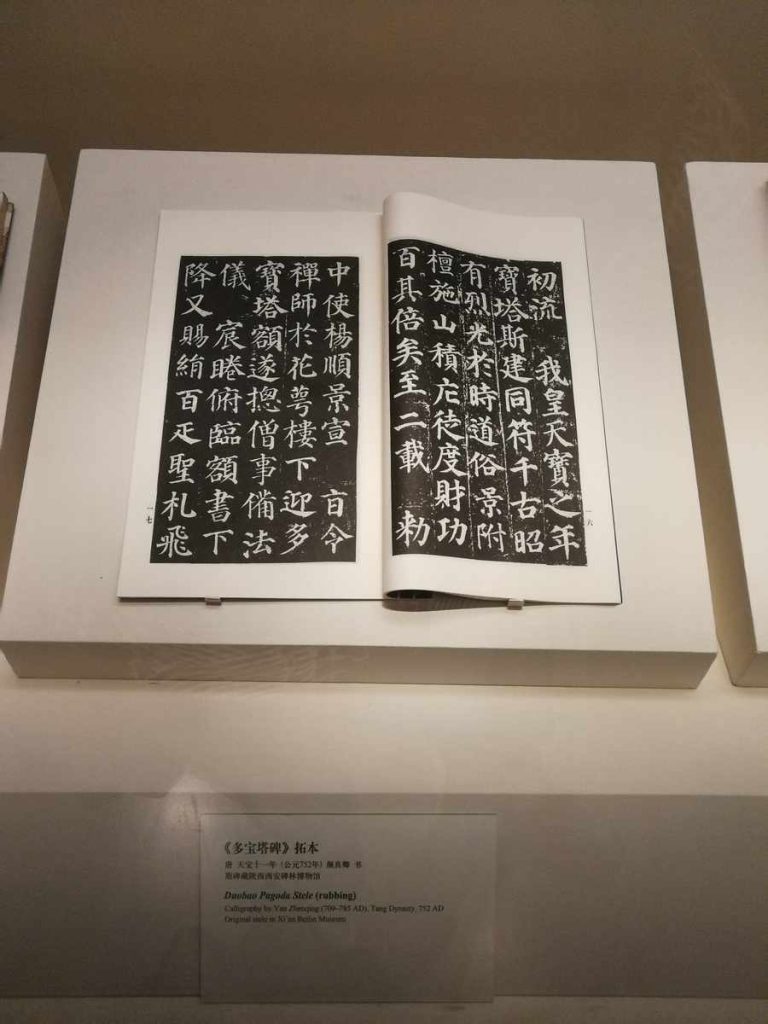 初流 我皇天寶之年
寶塔斯建同符千古昭
有烈光於時道俗景附
檀施山積庀徒度財功
百其倍矣至二載 敕
一六
中使楊順景宣 旨令
禪師於花萼樓下迎多
寶塔額遂揔僧事備法
儀 宸睠俯臨額書下
降又賜絹百疋聖札飛
一七
《多宝塔碑》拓本
唐 天宝十一年（公元752年）颜真卿 书
原碑藏陕西西安碑林博物馆
Duobao Pagoda Stele (rubbing)
Calligraphy by Yan Zhenqing (709-785 AD), Tang Dynasty, 752 AD
Original stele in Xi'an Beilin Museum